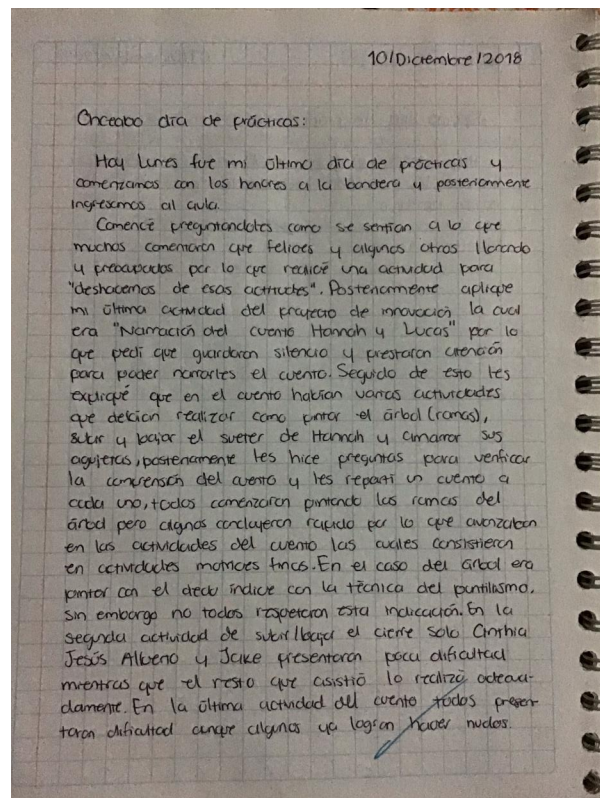 10/Diciembre/2018
Onceabo día de prácticas:
Hoy Lunes fue mi último día de prácticas y
comenzamos con los honores a la bandera y posteriormente
ingresamos al aula.
Comencé preguntandoles como se sentian a lo que
muchos comentaron que felices y algunos otros llorando
y preocupados por lo que realicé una actividad para
"deshacernos de esas actitudes". Posteriormente aplique
mi última actividad del proyecto de innovación la cual
era "Narración del cuento Hannah y Lucas" por lo
que pedí que guardaran silencio y prestaran atención
para poder narrarles el cuento. Seguido de esto les
expliqué que en el cuento habían varias actividades
que debían realizar como pintar el árbol (ramas),
subir y bajar el sueter de Hannah y amarrar sus
agujetas, posteriamente les hice preguntas para verificar
la comprensión del cuento y les repartí un cuento a
cada uno, todos comenzaron pintando las ramas del
árbol pero algnos concluyeron rapido por lo que avanzaban
en las actividades del cuento las cuales consistieron
en actividades motrices finas. En el caso del árbol era
pintar con el dedo índice con la técnica del puntillismo,
sin embargo no todos respetaron esta indicación. En la
segunda actividad de subir/bajar el cierre solo Cinthia
Jesús Alberto y Jake presentaron poca dificultad
mientras que el resto que asistió lo realizó adecua-
damente. En la última actividad del cuento todos presen-
taron dificultad aunque algunos ya logran hacer nudos.